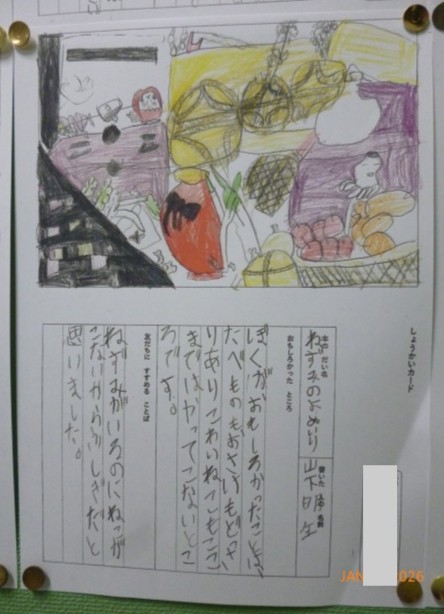 しょうかいカード
本の だい名
ねずみのよめいり
書いた 人の 名前
山下明生
おもしろかった ところ
ぼくがおもしろかったことは、
たべものもおさいもどっさ
りありこわいねこもここ
まではやってこないとこ
ろです。
友だちに すすめる ことば
ねずみがいるのにねこが
こないからふしぎだと
思いました。
JAN 026